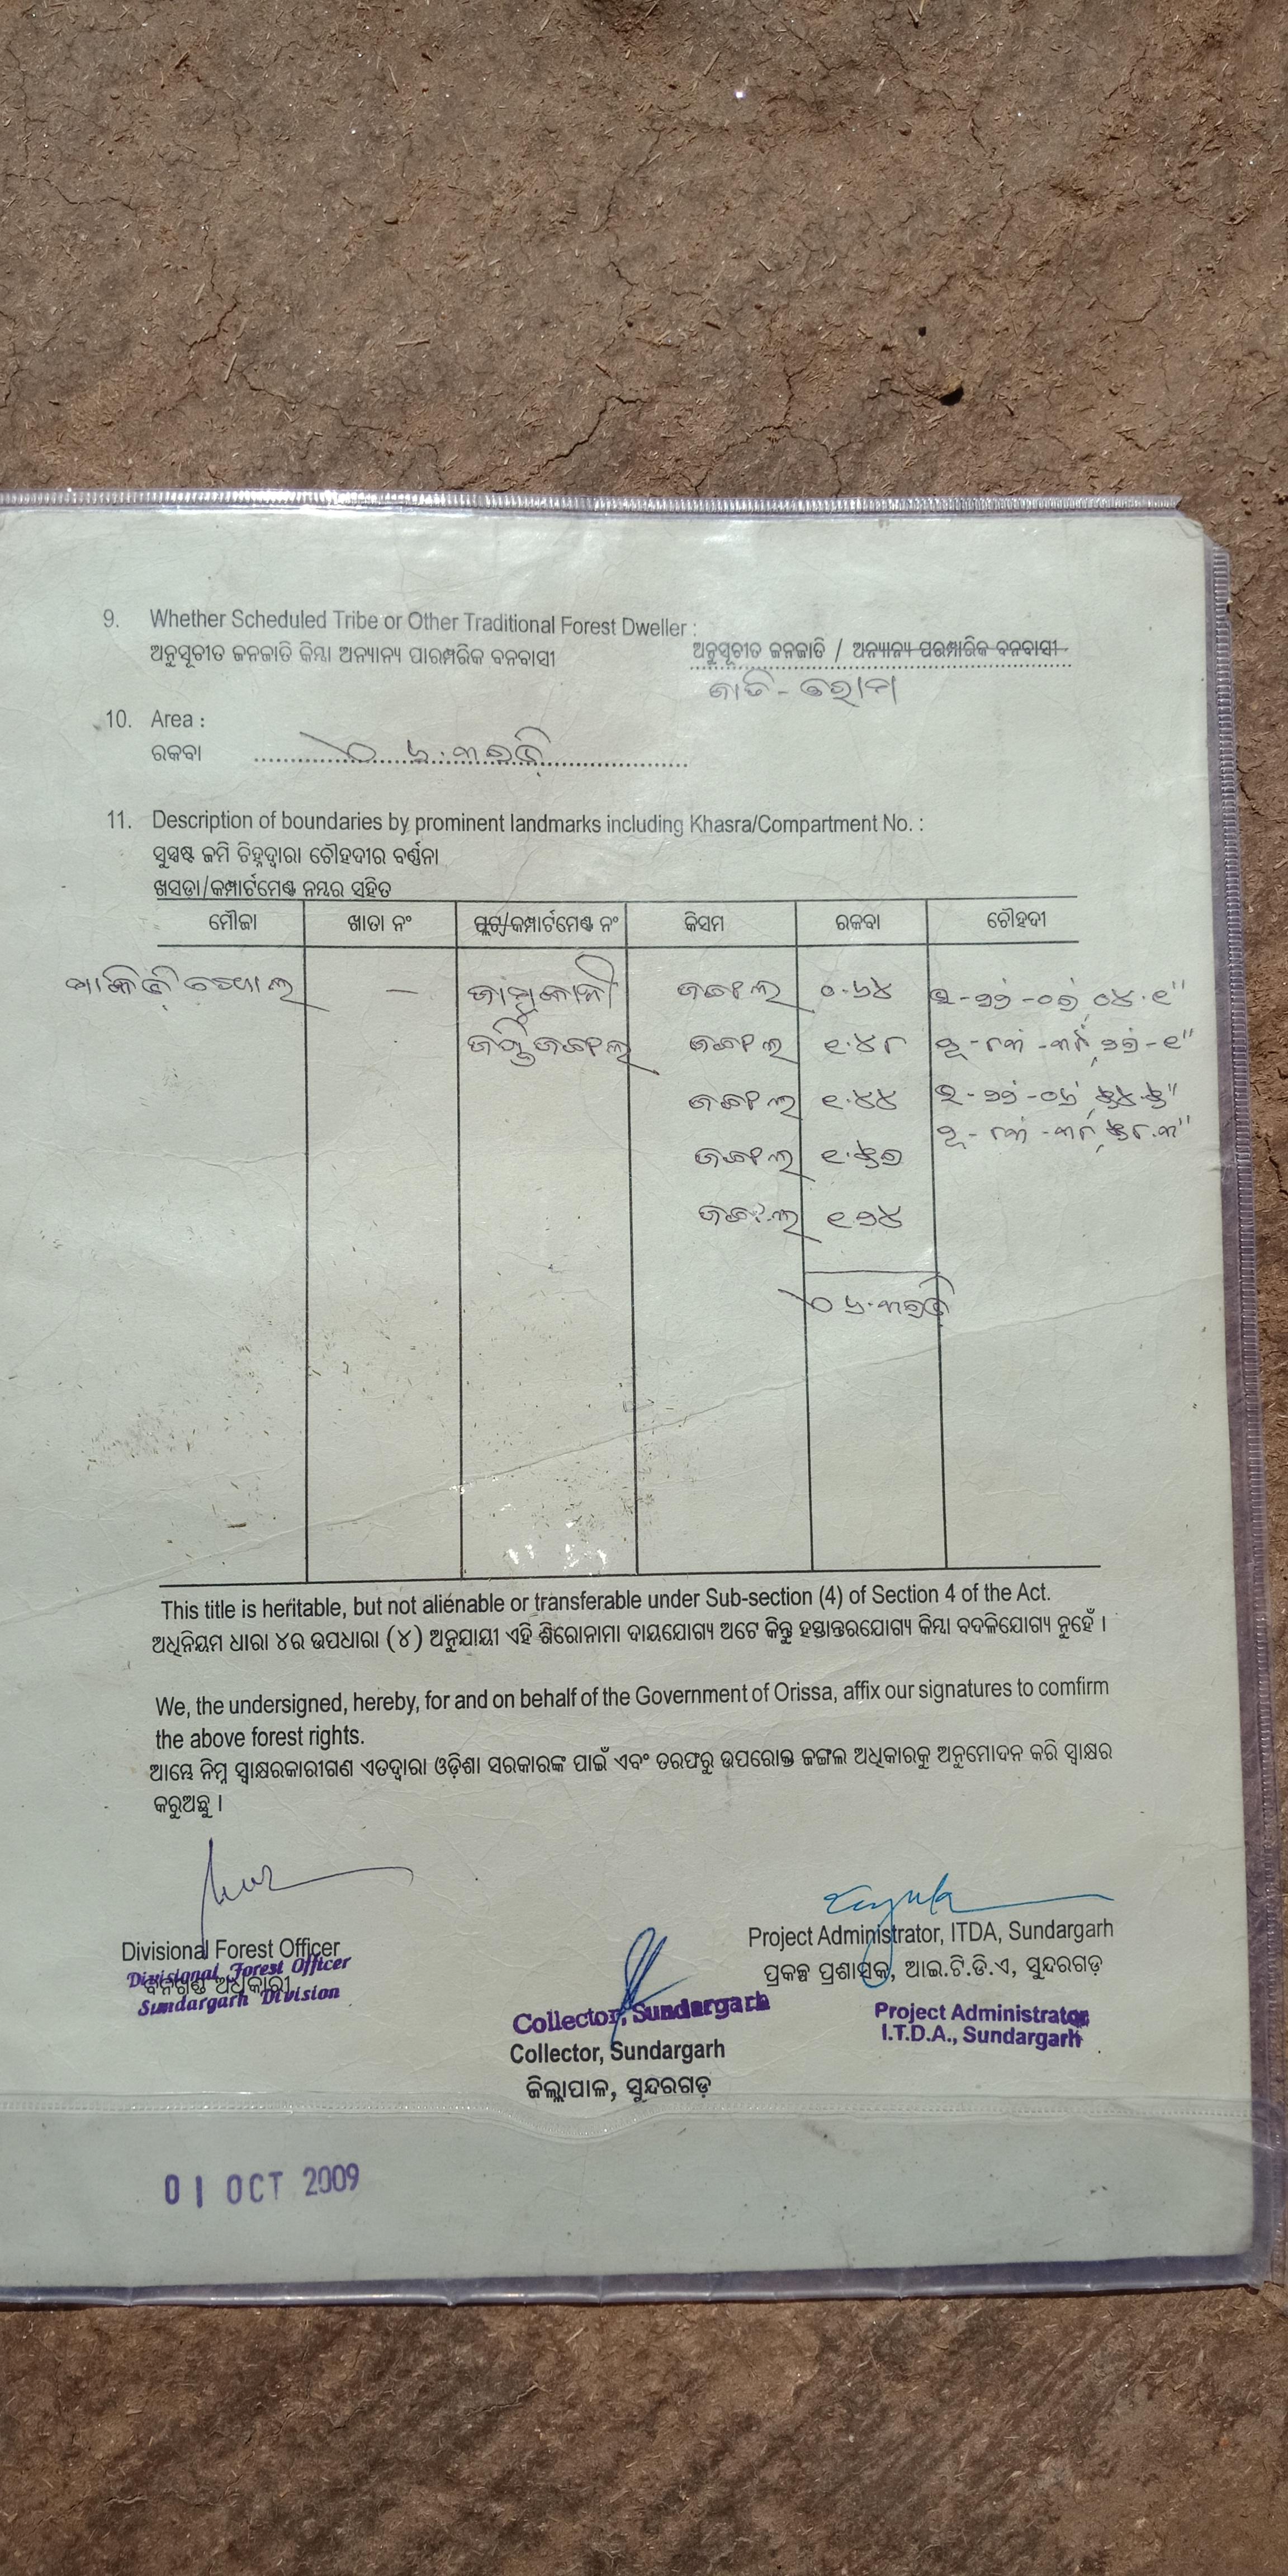 9. Whether Scheduled Tribe or Other Traditional Forest Dweller :
ଅନୁସୂଚୀତ ଜନଜାତି କିମ୍ବା ଅନ୍ୟାନ୍ୟ ପାରମ୍ପରିକ ବନବାସୀ
ଅନୁସୂଚୀତ ଜନଜାତି / ଅନ୍ୟାନ୍ୟ ପରମ୍ପାରିକ ବନବାସୀ
ଜାତି -
10. Area :
ରକବା
11. Description of boundaries by prominent landmarks including Khasra/Compartment No. :
ସୁସ୍ପଷ୍ଟ ଜମି ଚିହ୍ନଦ୍ୱାରା ଚୌହଦୀର ବର୍ଣ୍ଣନା
ଖସଡା/କମ୍ପାର୍ଟମେଣ୍ଟ ନମ୍ବର ସହିତ
ମୌଜା ଖାତା ନଂ ପ୍ଲଟ୍/କମ୍ପାର୍ଟମେଣ୍ଟ ନଂ କିସମ ରକବା ଚୌହଦୀ
– ଜଙ୍ଗଲ ୦.୬୪
ଜଙ୍ଗଲ ୧.୪୮
ଜଙ୍ଗଲ ୧.୪୪
ଜଙ୍ଗଲ
ଜଙ୍ଗଲ ୧.୨୪
This title is heritable, but not alienable or transferable under Sub-section (4) of Section 4 of the Act.
ଅଧିନିୟମ ଧାରା ୪ର ଉପଧାରା (୪) ଅନୁଯାୟୀ ଏହି ଶିରୋନାମା ଦାୟଯୋଗ୍ୟ ଅଟେ କିନ୍ତୁ ହସ୍ତାନ୍ତରଯୋଗ୍ୟ କିମ୍ବା ବଦଳିଯୋଗ୍ୟ ନୁହେଁ ।
We, the undersigned, hereby, for and on behalf of the Government of Orissa, affix our signatures to comfirm
the above forest rights.
ଆମ୍ଭେ ନିମ୍ନ ସ୍ୱାକ୍ଷରକାରୀଗଣ ଏତଦ୍ଦ୍ୱାରା ଓଡ଼ିଶା ସରକାରଙ୍କ ପାଇଁ ଏବଂ ତରଫରୁ ଉପରୋକ୍ତ ଜଙ୍ଗଲ ଅଧିକାରକୁ ଅନୁମୋଦନ କରି ସ୍ୱାକ୍ଷର
କରୁଅଛୁ ।
Divisional Forest Officer
ବନଖଣ୍ଡ ଅଧିକାରୀ
Divisional Forest Officer
Sundargarh Division
Collector, Sundargarh
Collector, Sundargarh
ଜିଲ୍ଲାପାଳ, ସୁନ୍ଦରଗଡ଼
Project Administrator, ITDA, Sundargarh
ପ୍ରକଳ୍ପ ପ୍ରଶାସକ, ଆଇ.ଟି.ଡି.ଏ, ସୁନ୍ଦରଗଡ଼
Project Administrator
I.T.D.A., Sundargarh
01 OCT 2009